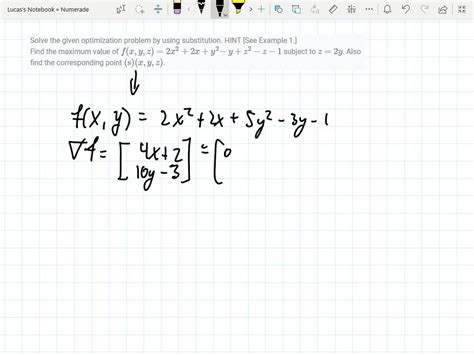 Lucas's Notebook » Numerade
Solve the given optimization problem by using substitution. HINT [See Example 1.]
Find the maximum value of f(x, y, z) = 2x² + 2x + y² − y + z² − z − 1 subject to z = 2y. Also
find the corresponding point (s)(x, y, z).
f(x, y) = 2x² + 2x + 5y² − 3y − 1
∇f = [4x + 2
10y − 3] = [0